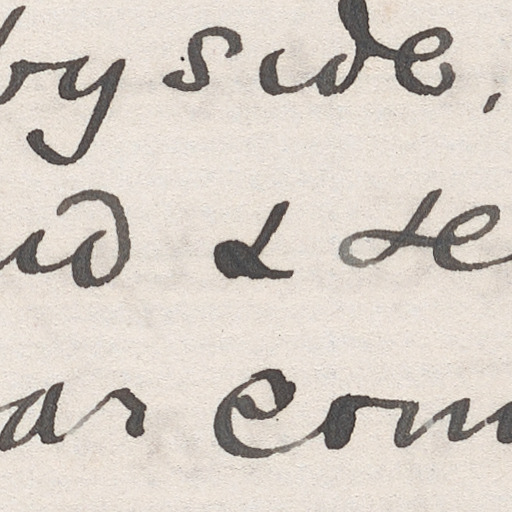 by side,
id & te
ar com